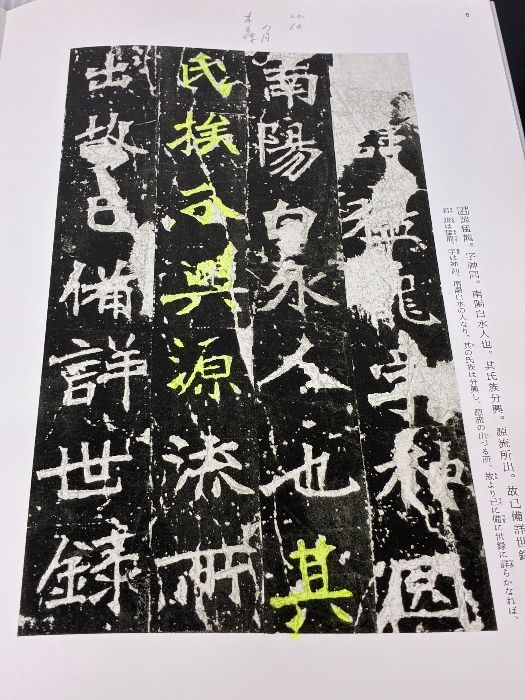 6
諱猛龍。字神冏。南陽白水人也。其氏族分興。源流所出。故已備詳世録
君、諱は猛龍、字は神冏、南陽白水の人なり。其の氏族は分興し、源流の出づる所、故より已に備に世録に詳らかなれば、
諱猛龍字神冏
南陽白水人也其
氏族分興源流所
出故已備詳世録